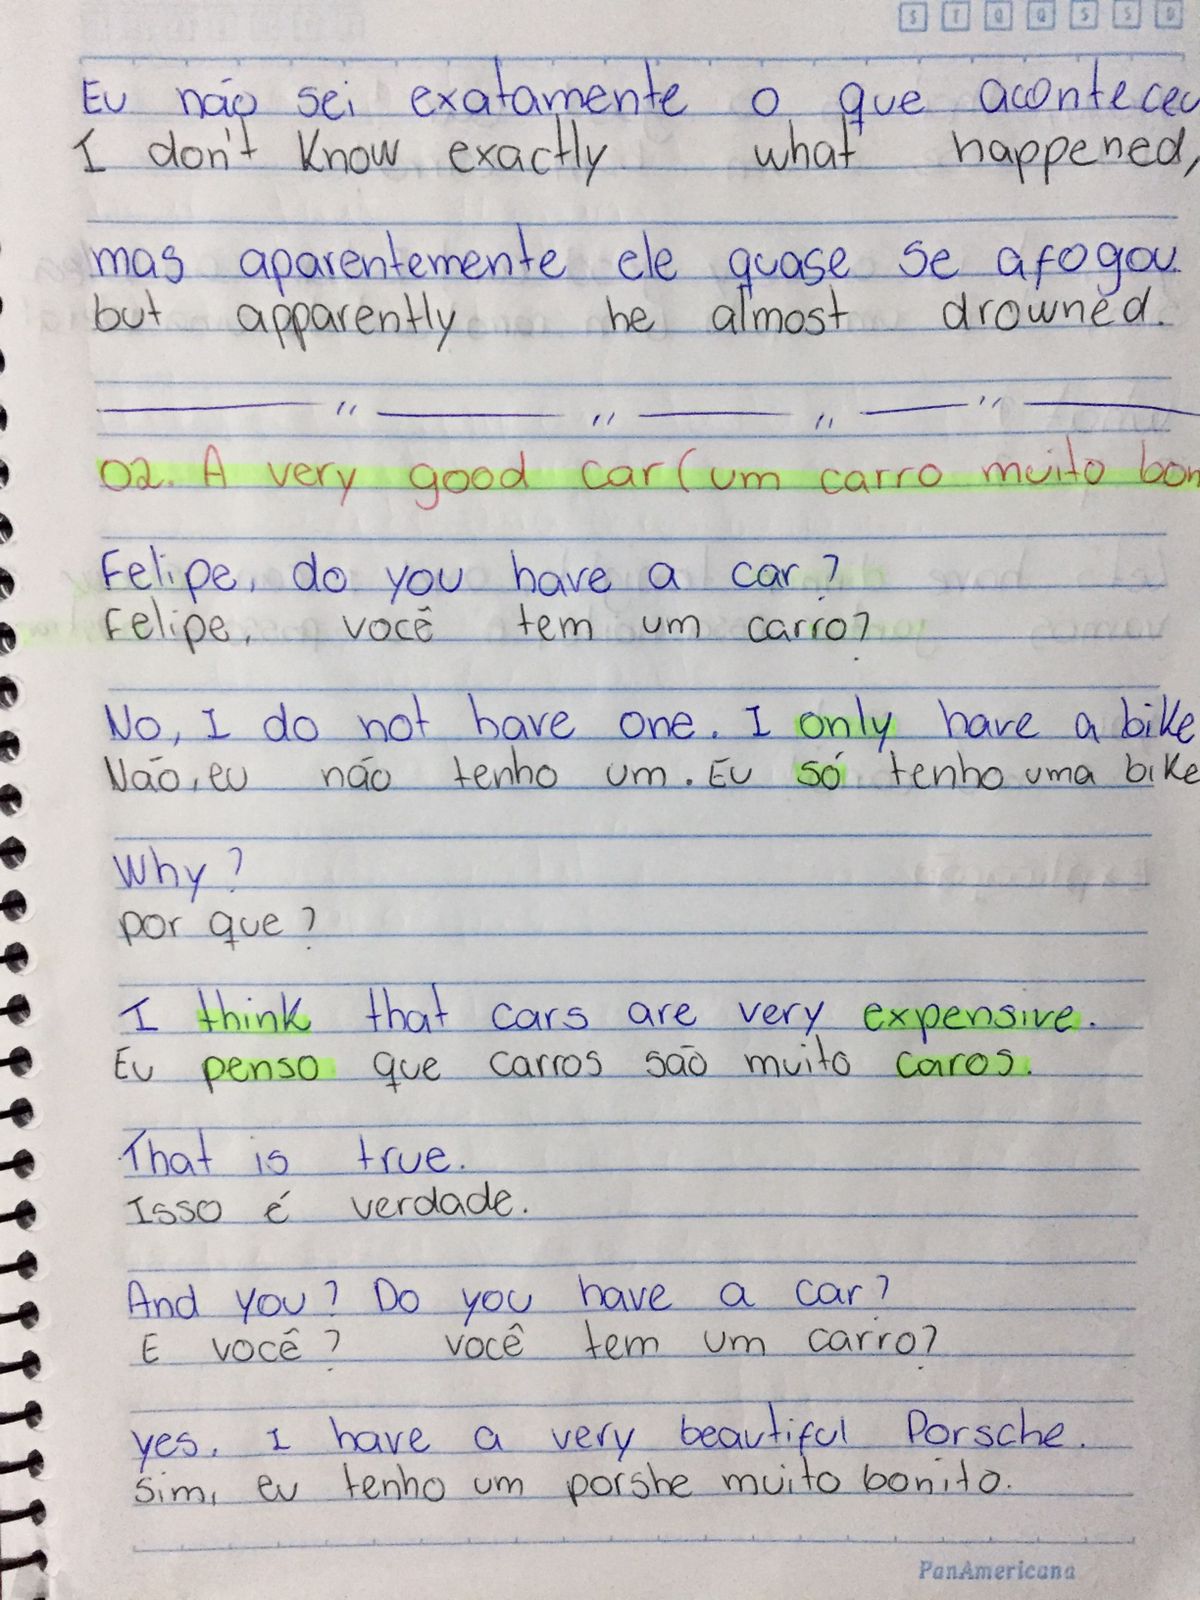 S T Q Q S S D
Eu não sei exatamente o que aconteceu
I don't know exactly what happened,
mas aparentemente ele quase se afogou.
but apparently he almost drowned.
02. A very good car (um carro muito bom
Felipe, do you have a car?
Felipe, você tem um carro?
No, I do not have one. I only have a bike
Não, eu não tenho um. Eu só tenho uma bike
Why?
por que?
I think that cars are very expensive.
Eu penso que carros são muito caros.
That is true.
Isso é verdade.
And you? Do you have a car?
E você? você tem um carro?
yes. I have a very beautiful Porsche.
Sim, eu tenho um porshe muito bonito.
PanAmericana